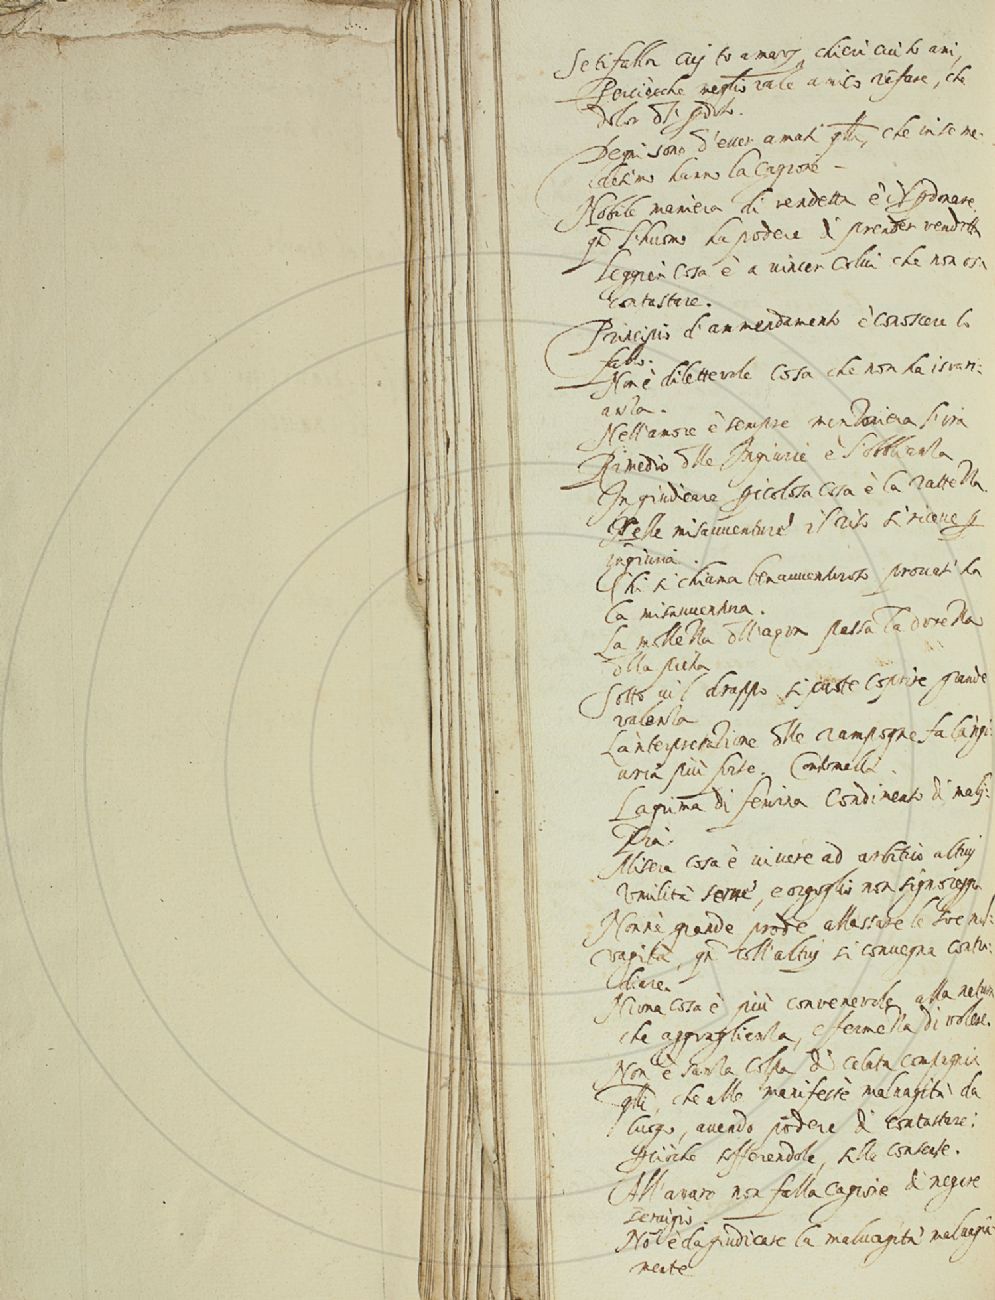 Se ti falla cuj tu amavj, chieri cui tu ami,
Perciocche meglio vale amico rifare, che
dolor di pduto.
Degni sono d'esser amati qlli, che in se me-
desimo hanno la cagione -
Nobile maniera di vendetta è il pdonare,
qdo l'huomo ha podere di prender vendetta
Leggier cosa è a vincer colui che non osa
contastare.
Principio d'ammendamento è conoscere lo
fallo.
Non è dilettevole cosa che non ha isvari:
anza.
Nell'amore è sempre menzoniera l'ira
Rimedio dlle Ingiurie è l'obblianza
In giudicare picolosa cosa è la rattezza
Nelle misavventure il riso si riceve p
ingiuria.
Chi si chiama benavventuroso provati ha
la misavventura.
La mollezza dll'aqua passa la durezza
dlla pietra
Sotto vil drappo si puote coprire grande
valenza
La'nterpretazione dlle rampogne fa la'ngi
uria più forte.
Lagrima di femina Condimento di mali:
zia.
Misera cosa è vivere ad arbitrio altruj
Umilità serve, e orgoglio non signoreggia
Non è grande prode abbassare le sue mal:
vagità, qdo coll'altruj si convegna contra:
diare.
Niuna cosa è più convenevole alla natura
che agguaglianza, e fermezza di volere.
Non è sanza colpa di celata compagnia
qlli, che alle manifeste malvagità dà
luogo, avendo podere di contastare;
pcioche sofferendole, si lle consente.
All'avaro non falla cagione di negare
servigio.
Non è da giudicare la malvagità malvagia
mente